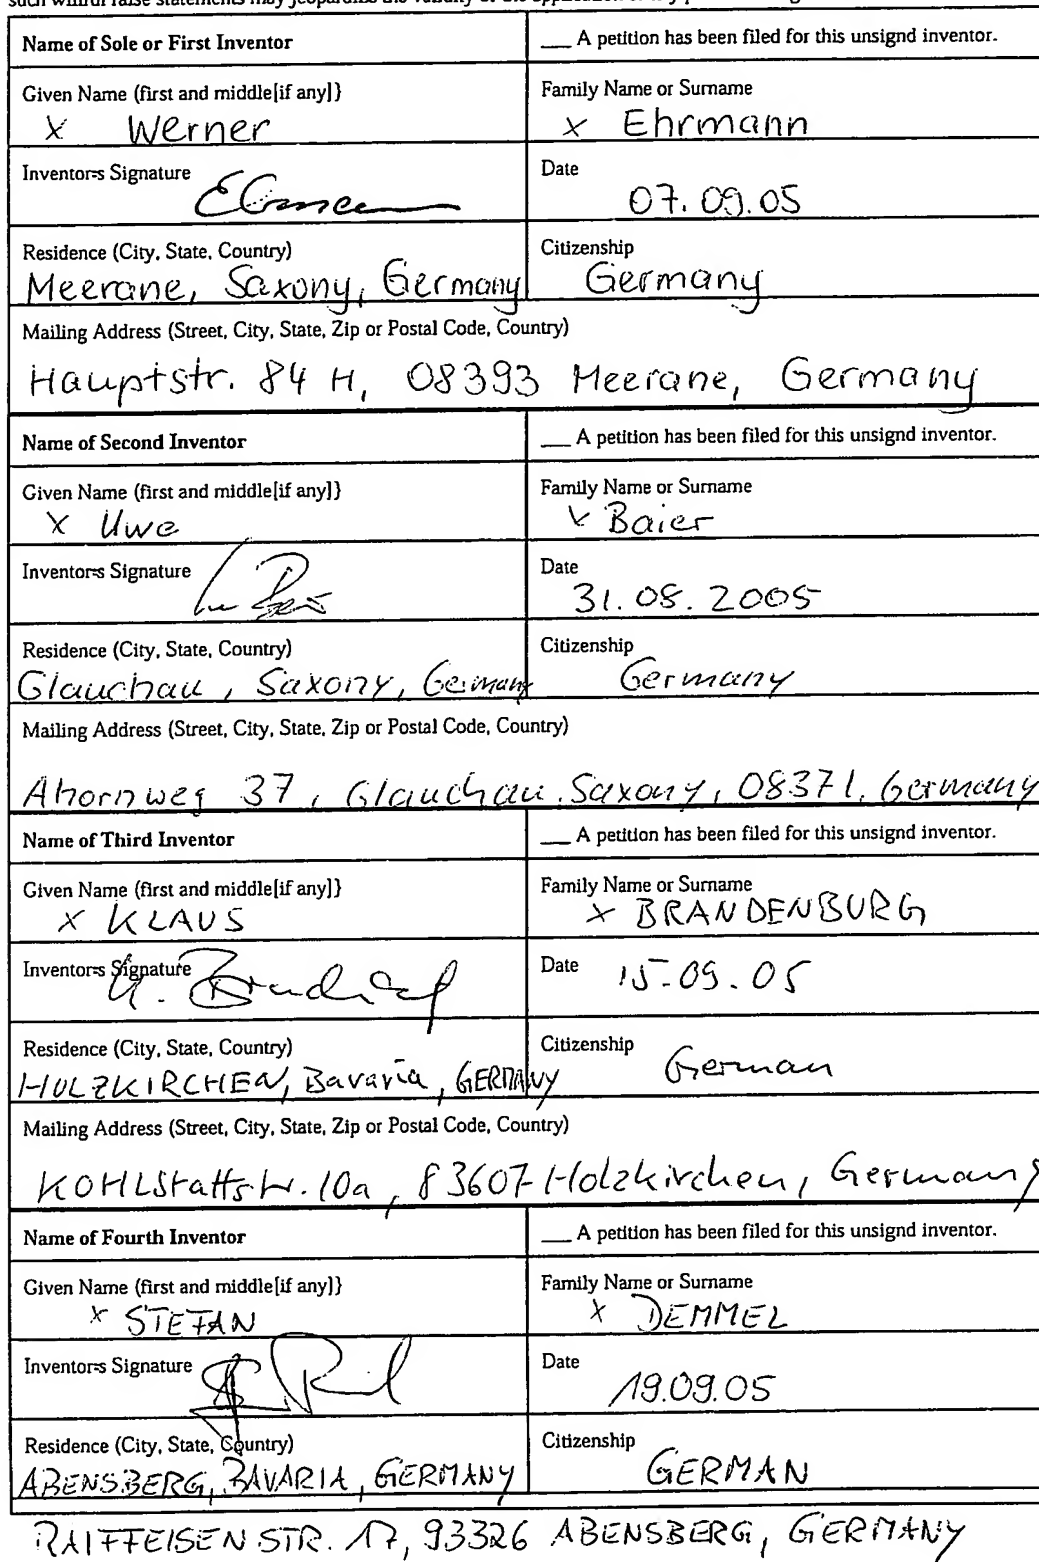 such willful false statements may jeopardize the validity of the application or any
Name of Sole or First Inventor ___ A petition has been filed for this unsignd inventor.
Given Name (first and middle[if any]} Family Name or Surname
X Werner X Ehrmann
Inventor=s Signature Date
07.09.05
Residence (City, State, Country) Citizenship
Meerane, Saxony, Germany Germany
Mailing Address (Street, City, State, Zip or Postal Code, Country)
Hauptstr. 84 H, 08393 Meerane, Germany
Name of Second Inventor ___ A petition has been filed for this unsignd inventor.
Given Name (first and middle[if any]} Family Name or Surname
X Uwe X Baier
Inventor=s Signature Date
31.08.2005
Residence (City, State, Country) Citizenship
Glauchau, Saxony, Germany Germany
Mailing Address (Street, City, State, Zip or Postal Code, Country)
Ahornweg 37, Glauchau, Saxony, 08371, Germany
Name of Third Inventor ___ A petition has been filed for this unsignd inventor.
Given Name (first and middle[if any]} Family Name or Surname
X KLAUS X BRANDENBURG
Inventor=s Signature Date 15.09.05
Residence (City, State, Country) Citizenship
HOLZKIRCHEN, Bavaria, GERMANY German
Mailing Address (Street, City, State, Zip or Postal Code, Country)
KOHLStattstr. 10a, 83607 Holzkirchen, Germany
Name of Fourth Inventor ___ A petition has been filed for this unsignd inventor.
Given Name (first and middle[if any]} Family Name or Surname
X STEFAN X DEMMEL
Inventor=s Signature Date
19.09.05
Residence (City, State, Country) Citizenship
ABENSBERG, BAVARIA, GERMANY GERMAN
RAIFFEISENSTR. 17, 93326 ABENSBERG, GERMANY